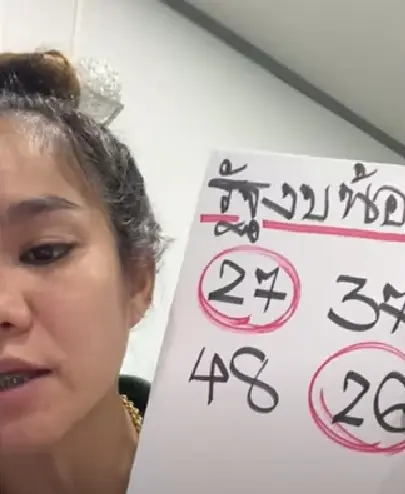 รัฐงบซ้อ
27 37
48 26